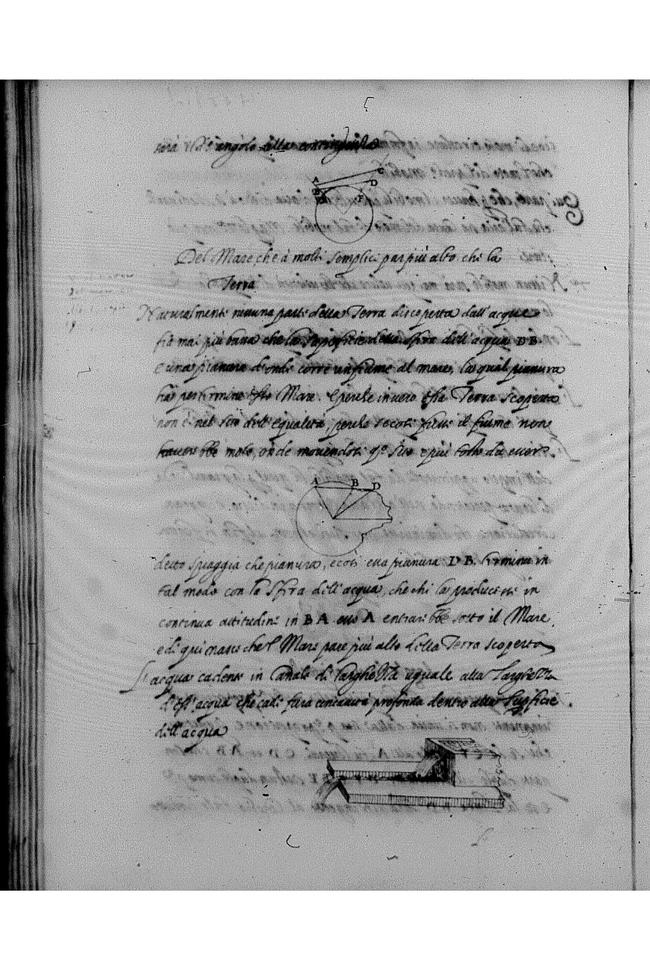 sarà il d.º angolo della contingenza
A C
B D
E F
Del Mare che à molti semplici par più alto che la
Terra
Naturalmente niuna parte della Terra discoperta dall'acque
fia mai più bassa che la superficie della sfera dell'acqua. DB.
è una pianura d'onde corre un fiume al mare, la qual pianura
ha per termine esso Mare. E perche in vero essa Terra scoperta
non è nel sito dell'equalità, perche se così fusse il fiume non
haverebbe moto, onde movendosi q.º sito è più tosto da esser
A B D
detto spiaggia che pianura, e così essa pianura DB. termina in
tal modo con la sfera dell'acqua, che chi la producesse in
continua attitudine in BA. essa A entrarebbe sotto il Mare
e di qui nasce che'l Mare pare più alto della Terra scoperta
Se acqua cadente in Canale di larghezza uguale alla larghezza
d'ess' acqua che cade farà concavità profonda dentro alla superficie
dell'acqua